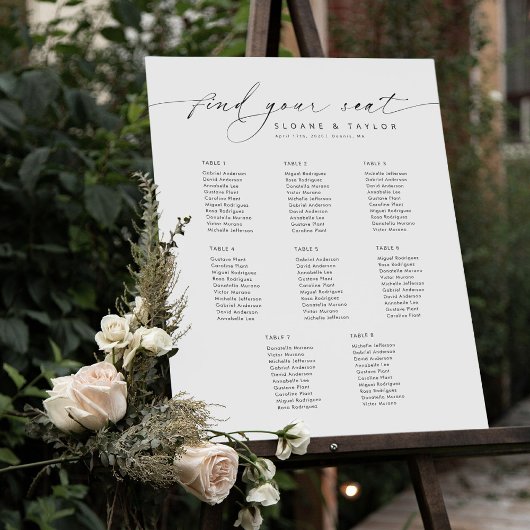 find your seat
SLOANE & TAYLOR
April 17th, Dennis, MA
TABLE 1
Gabriel Anderson
David Anderson
Annabelle Lee
Gustave Plant
Caroline Plant
Miguel Rodriguez
Rosa Rodriguez
Donatella Murano
Victor Murano
Michelle Jefferson
TABLE 2
Miguel Rodriguez
Rosa Rodriguez
Donatella Murano
Victor Murano
Michelle Jefferson
Gabriel Anderson
David Anderson
Annabelle Lee
Gustave Plant
Caroline Plant
TABLE 3
Michelle Jefferson
Gabriel Anderson
David Anderson
Annabelle Lee
Gustave Plant
Caroline Plant
Miguel Rodriguez
Rosa Rodriguez
Donatella Murano
Victor Murano
TABLE 4
Gustave Plant
Caroline Plant
Miguel Rodriguez
Rosa Rodriguez
Donatella Murano
Victor Murano
Michelle Jefferson
Gabriel Anderson
David Anderson
Annabelle Lee
TABLE 5
Gabriel Anderson
David Anderson
Annabelle Lee
Gustave Plant
Caroline Plant
Miguel Rodriguez
Rosa Rodriguez
Donatella Murano
Victor Murano
Michelle Jefferson
TABLE 6
Miguel Rodriguez
Rosa Rodriguez
Donatella Murano
Victor Murano
Michelle Jefferson
Gabriel Anderson
David Anderson
Annabelle Lee
Gustave Plant
Caroline Plant
TABLE 7
Donatella Murano
Victor Murano
Michelle Jefferson
Gabriel Anderson
David Anderson
Annabelle Lee
Gustave Plant
Caroline Plant
Miguel Rodriguez
Rosa Rodriguez
TABLE 8
Michelle Jefferson
Gabriel Anderson
David Anderson
Annabelle Lee
Gustave Plant
Caroline Plant
Miguel Rodriguez
Rosa Rodriguez
Donatella Murano
Victor Murano